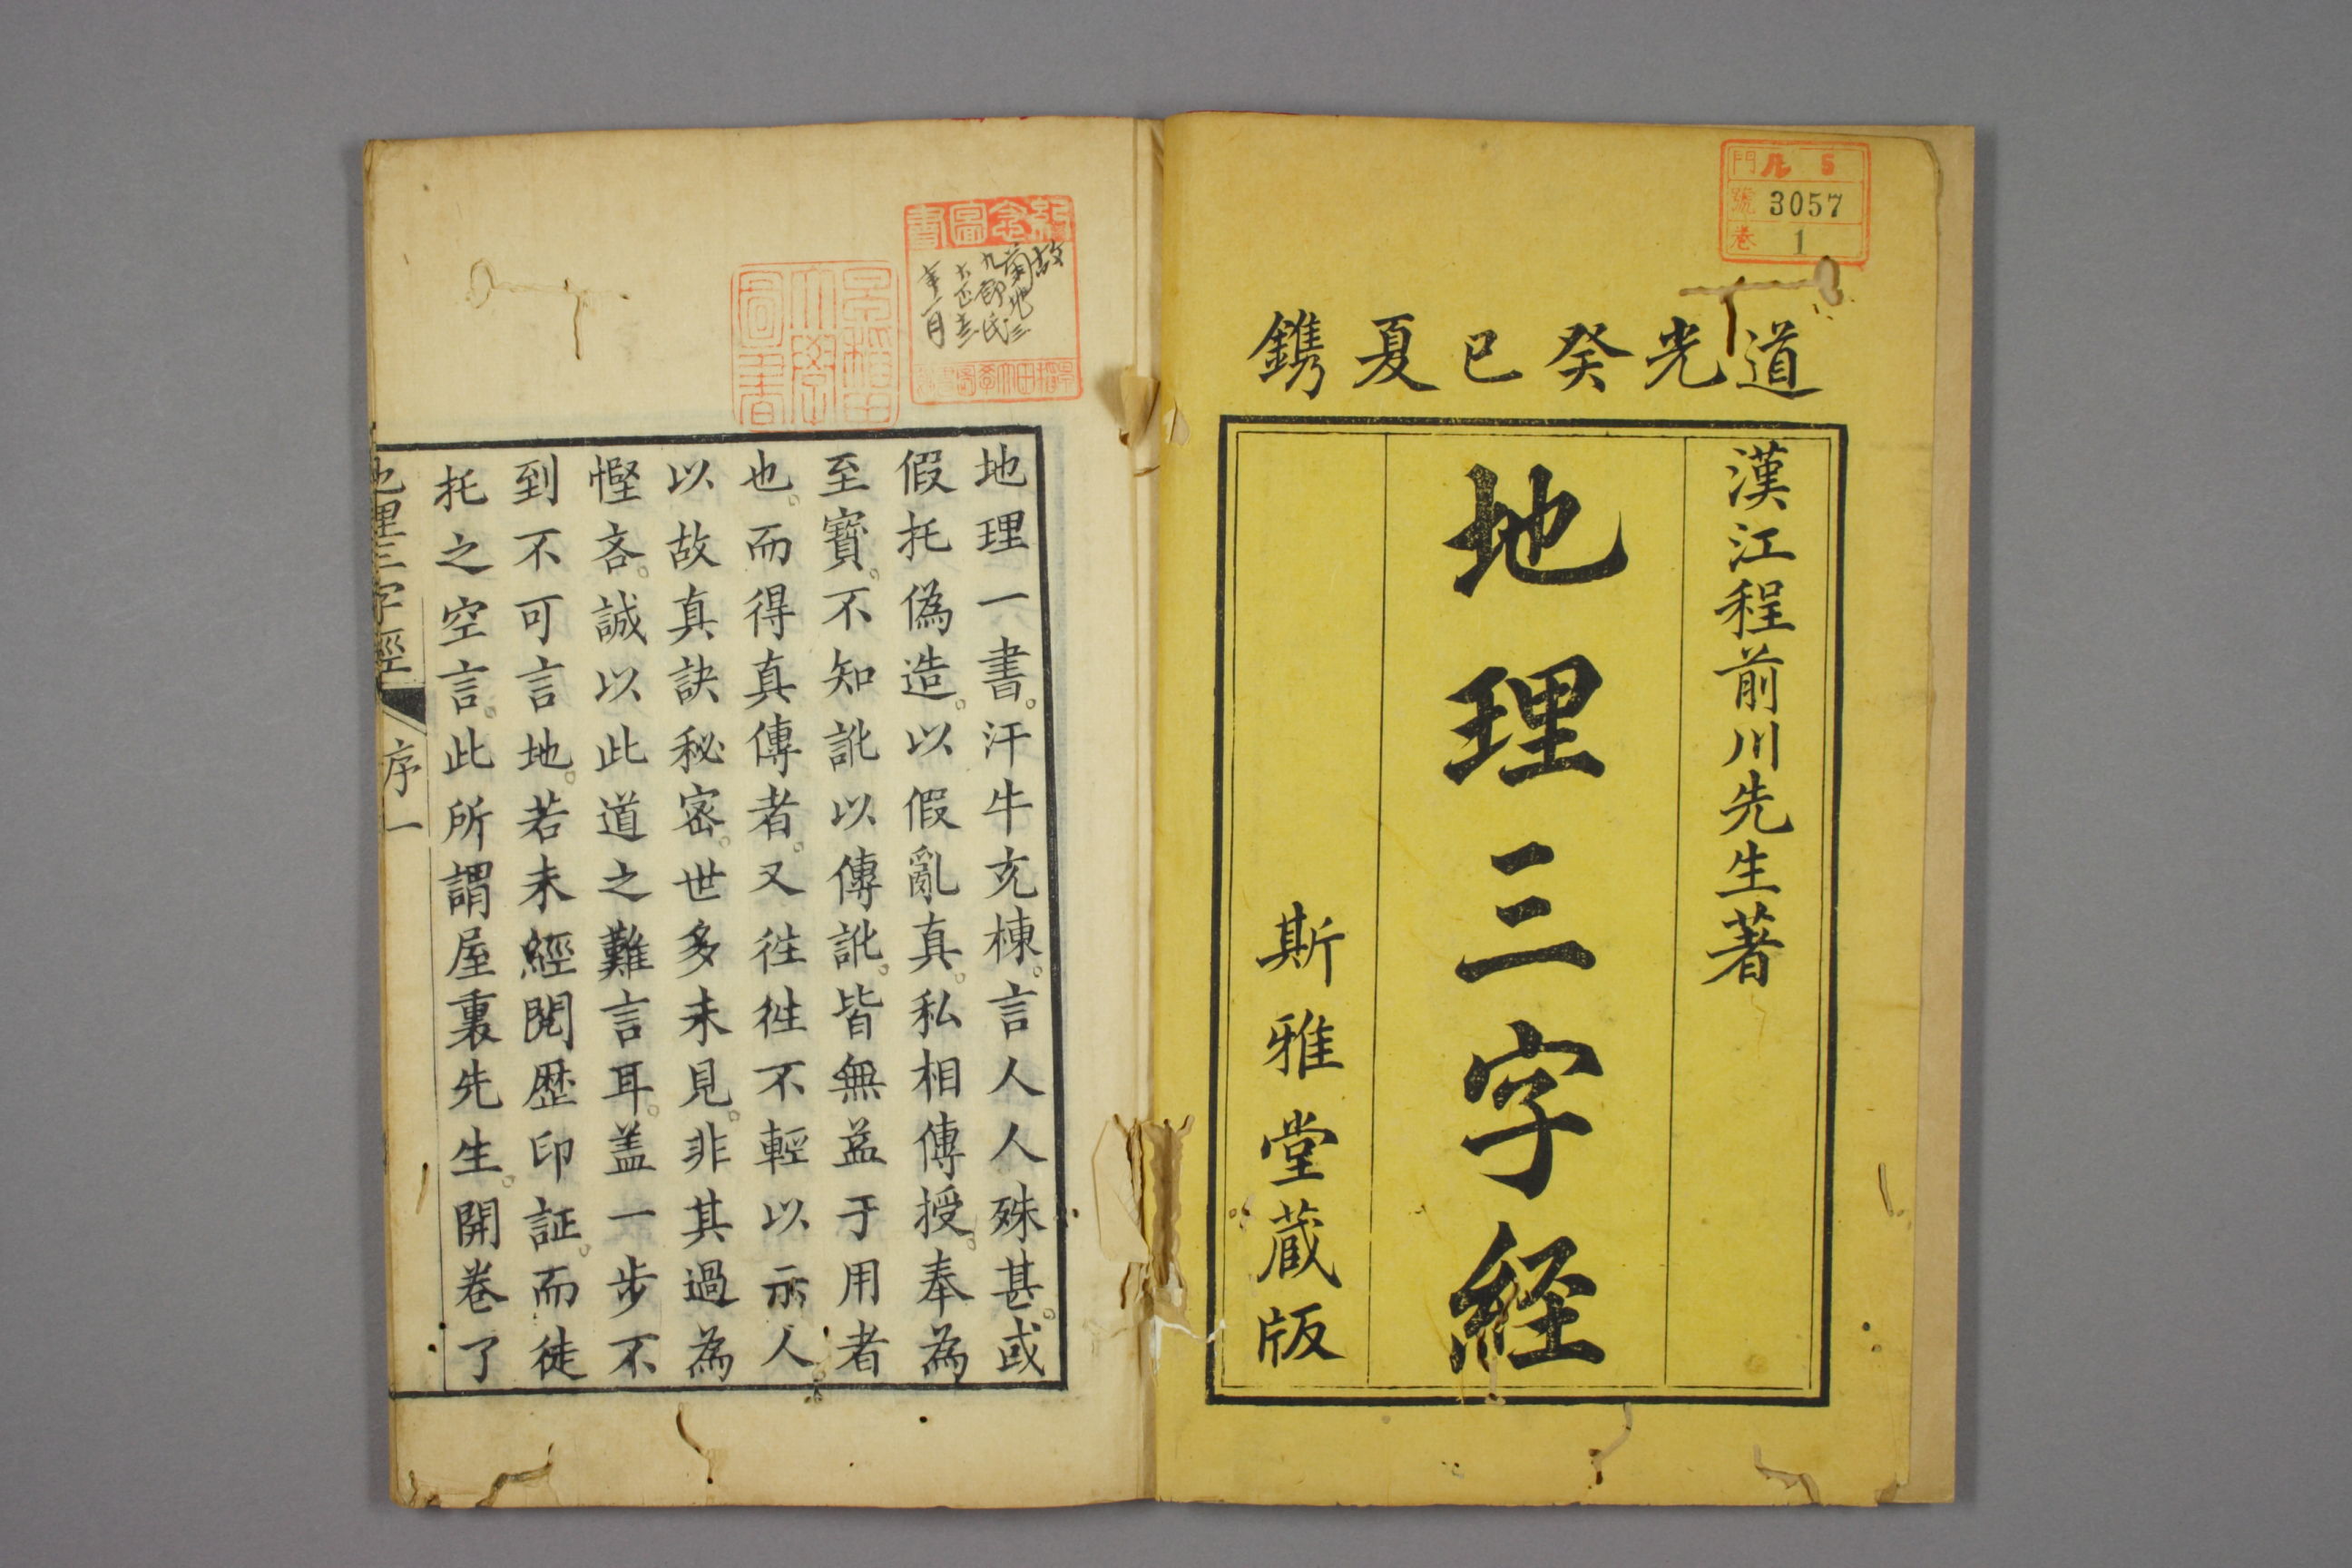 門 ル 5
號 3057
卷 1
道光癸巳夏鐫
漢江程前川先生著
地理三字経
斯雅堂蔵版
紀念圖書
故
菊地三
九郎氏
年一月
早稲田大學圖書
地理一書。汗牛充棟。言人人殊甚。或
假托偽造。以假亂真。私相傳授。奉為
至寳。不知訛以傳訛。皆無益于用者
也。而得真傳者。又徃徃不輕以示人
以故真訣秘密。世多未見。非其過為
慳吝。誠以此道之難言耳。盖一步不
到不可言地。若未經閱歴印証。而徒
托之空言。此所謂屋裏先生。開卷了
地理三字經 序 一